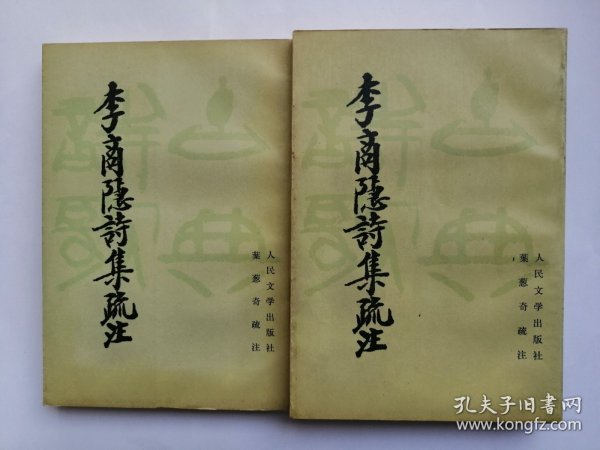 李商隱詩集疏注
人民文学出版社
葉葱奇疏注
李商隱詩集疏注
人民文学出版社
葉葱奇疏注
孔夫子旧书网
www.kongfz.com